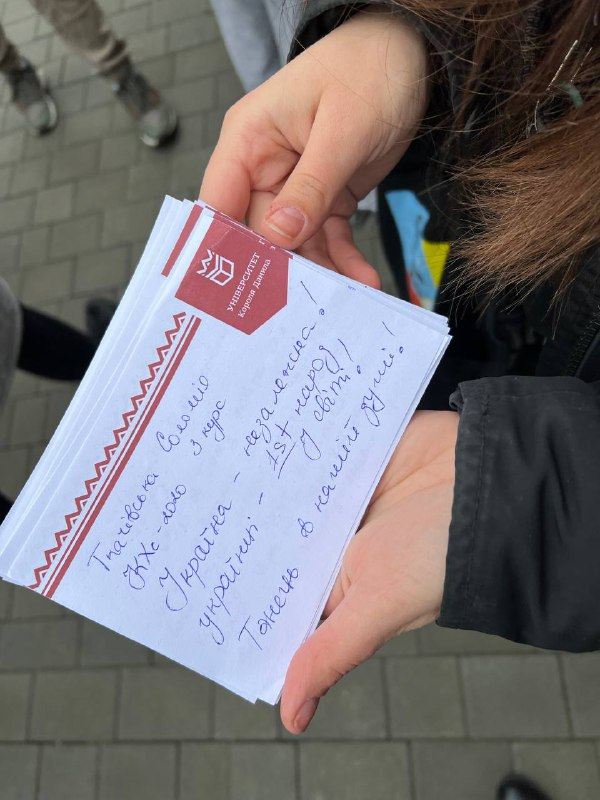 УНІВЕРСИТЕТ
Короля Данила
Ткачівська Соломія
3 курс
Україна - незалежна!
українці - 1st народ
у світі!
Танець в нашій душі!